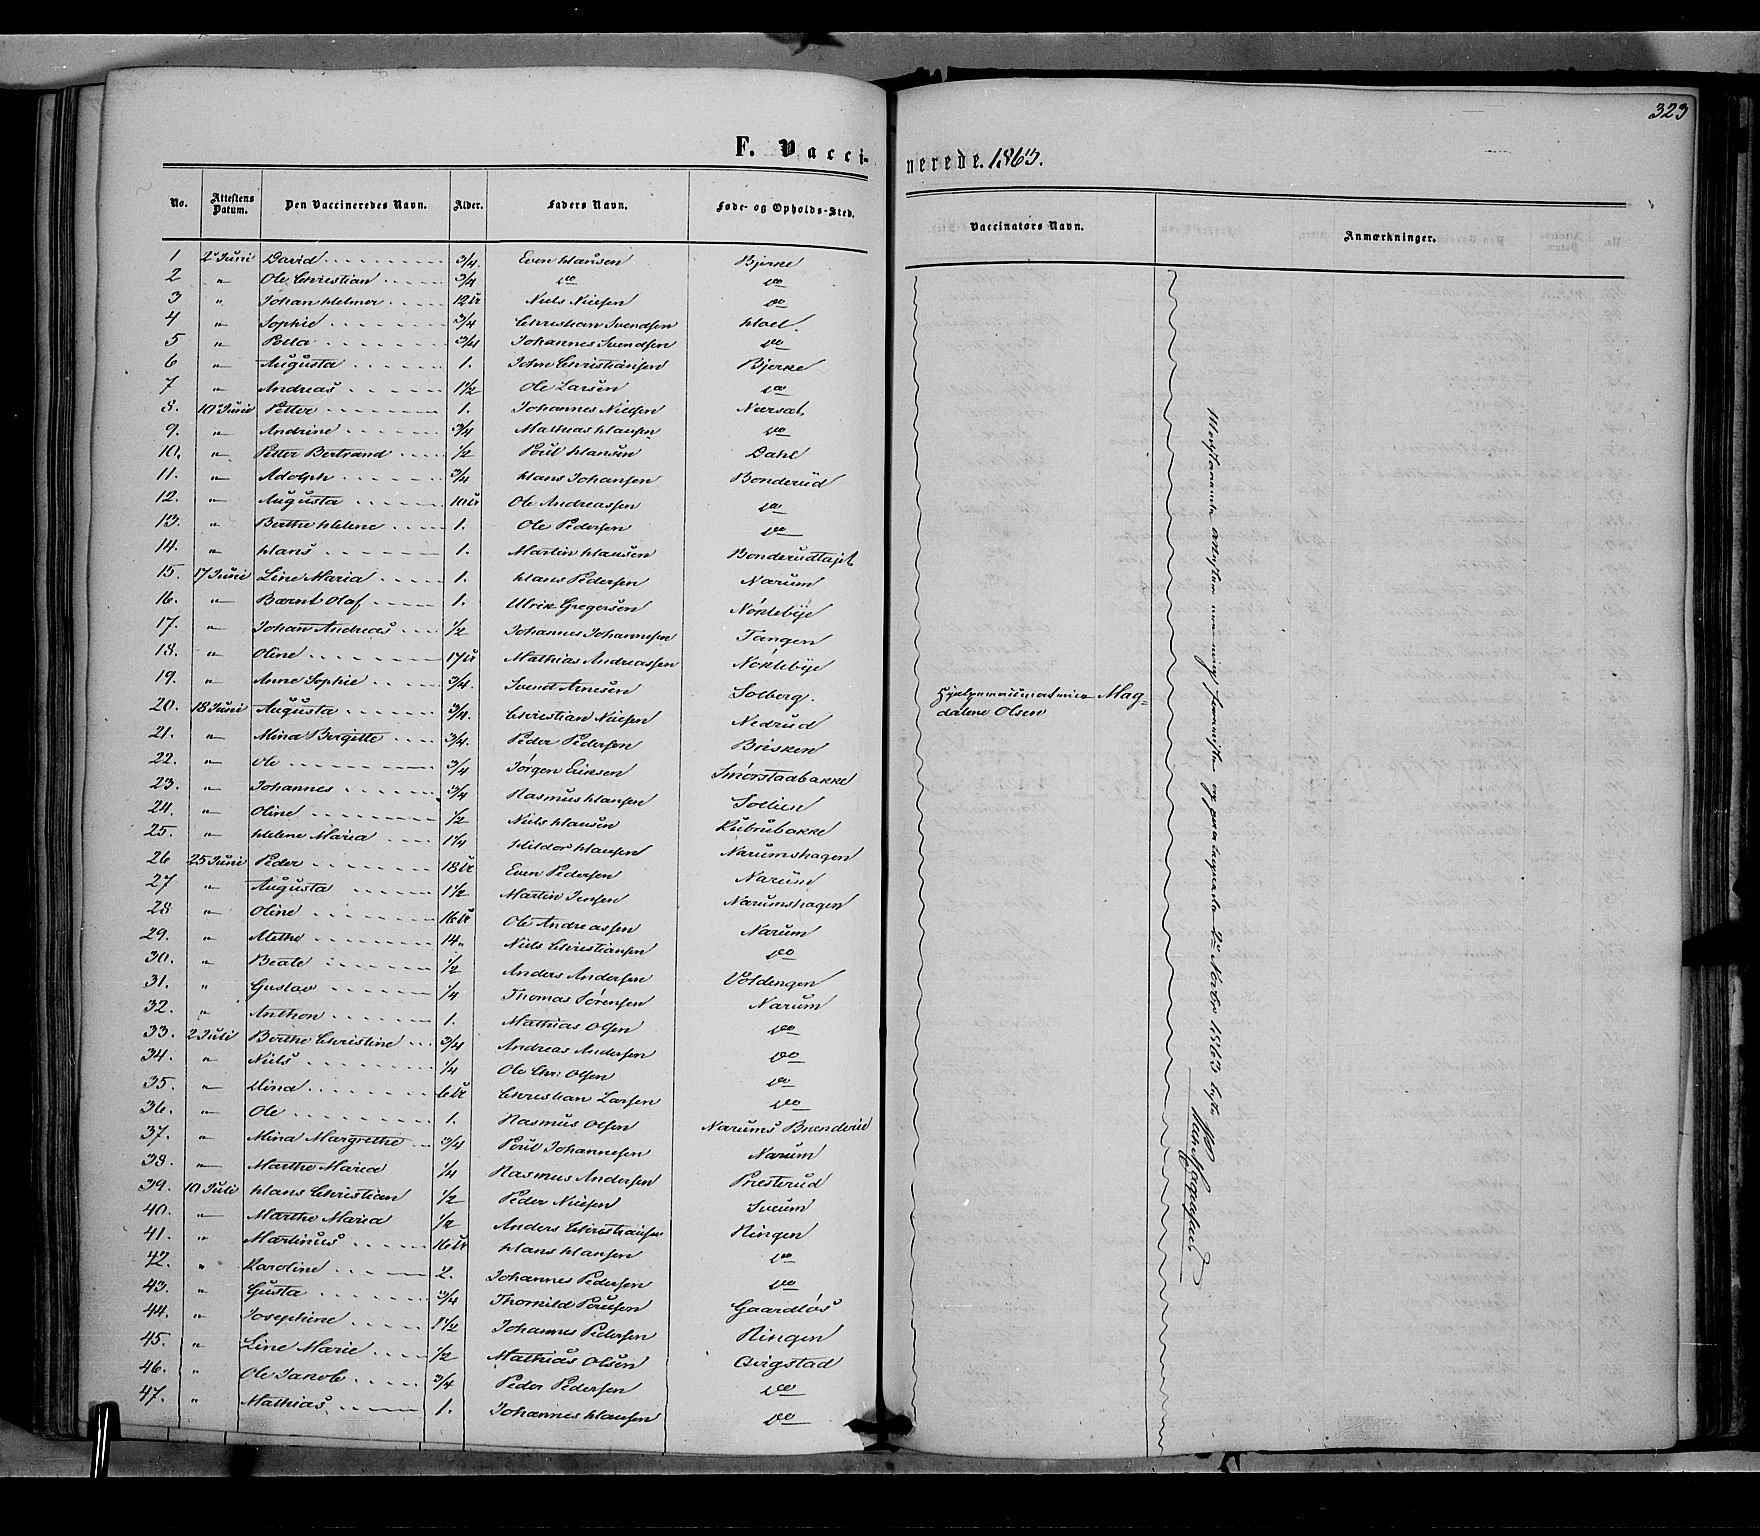 323
F. Vaccinerede. 1863.
No. Attestens Datum. Den Vaccineredes Navn. Alder. Faders Navn. Føde- og Opholds-Sted. Vaccinators Navn. Anmærkninger.
1 2 Juni David 3/4. Even Hansen Bjerke
2 " Ole Christian 3/4 do do
3 " Johan Helmer 12 Niels Nielsen do
4 " Sophie 3/4 Christian Svendsen Hoel.
5 " Petra 3/4 Johannes Svendsen do
6 " Augusta 1. John Christiansen Bjerke
7 " Andreas 1 1/2 Ole Larsen do
8. 10 Juni Petter 1. Johannes Nielsen Nærsat
9. " Andrine 3/4 Mathias Hansen do
10. " Peter Bertrand 1/2 Poul Hansen Dahl
11. " Adolph 3/4 Hans Johansen Bonderud
12. " Augusta Ole Andreassen do
13. " Berthe Helene 1. Ole Pedersen do
14. " Hans 1. Martin Hansen Bonderudtajet
15. 17 Juni Line Maria 1. Hans Pedersen Narum
16. " Bærnt Olaf 1. Ulrik Gregersen Nøklebye
17. " Johan Andreas 1/2 Johannes Johannesen Tangen
18. " Oline 17 Mathias Andreassen Nøklebye
19. " Anne Sophie 3/4. Svend Arnesen Solberg.
20. 18 Juni Augusta 3/4. Christian Nielsen Nedrud Hjelpevaccinatrice Mag-
dalene Olsen
21. " Mina Bergitte 3/4. Peder Pedersen Brisken
22. " Ole 3/4 Jørgen Eriksen Smørstadbakke
23. " Johannes 3/4 Rasmus Hansen Sollien
24. " Oline 1/2 Niels Hansen Rubrubakke
25. " Helene Maria 1 1/4 Hildor Hansen Narumshagen
26 25 Juni Peder 18 Even Pedersen Narum
27 " Augusta 1 1/2 Martin Jensen Narumshagen
28 " Oline 16 Ole Andreassen Narum
29. " Methe 14 " Niels Christiansen do
30. " Beate 1/2 Anders Andersen Voldengen
31. " Gustav 1/4 Thomas Sørensen Narum
32. " Anthon 1. Mathias Olsen do
33. 2 Juli Berthe Christine 3/4 Andreas Andersen do
34. " Niels 1/4 Ole Chr: Olsen do
35. " Dina 6 Christian Larsen do
36. " Ole 1. Rasmus Olsen Narums Brænderie
37. " Mina Margrethe 3/4 Poul Johannesen Narum
38. " Marthe Maria 1/4 Rasmus Andersen Presterud
39. 10 Juli Hans Christian 1/2 Peder Nielsen Sveum
40. " Marthe Maria 1/2 Anders Christiansen Ringen
41. " Martinus 16 Hans Hansen do
42. " Karoline 2. Johannes Pedersen do
43. " Gusta 3/4 Thorkild Poulsen Gaardløs
44. " Josephine 1 1/2 Johannes Pedersen Ringen
45. " Line Marie 1/2 Mathias Olsen Qvigstad
46. " Ole Jakob 3/4 Peder Pedersen do
47. " Mathias 1. Johannes Hansen do
1863